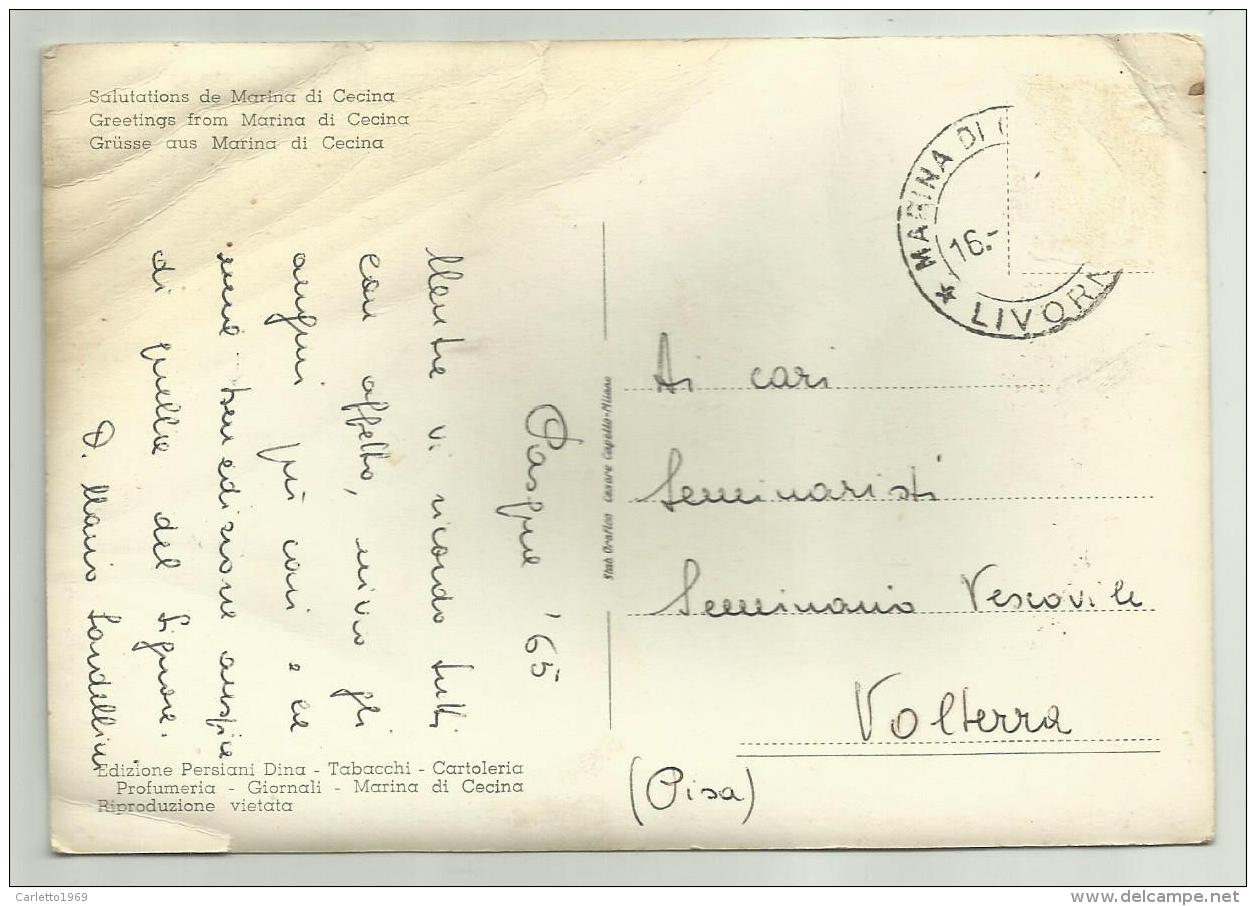 Salutations de Marina di Cecina
Greetings from Marina di Cecina
Grüsse aus Marina di Cecina
Pasqua '65
Mentre vi ricordo tutti
con affetto, invio gli
auguri più cari e la
mia benedizione auspice
di quella del Signore.
D. Mario
Edizione Persiani Dina - Tabacchi - Cartoleria
Profumeria - Giornali - Marina di Cecina
Riproduzione vietata
Stab. Grafico Cesare Capello-Milano
★ MARINA DI C
16.-
LIVORN
Ai cari
Seminaristi
Seminario Vescovile
Volterra
(Pisa)
Carletto1969
delcampe.net